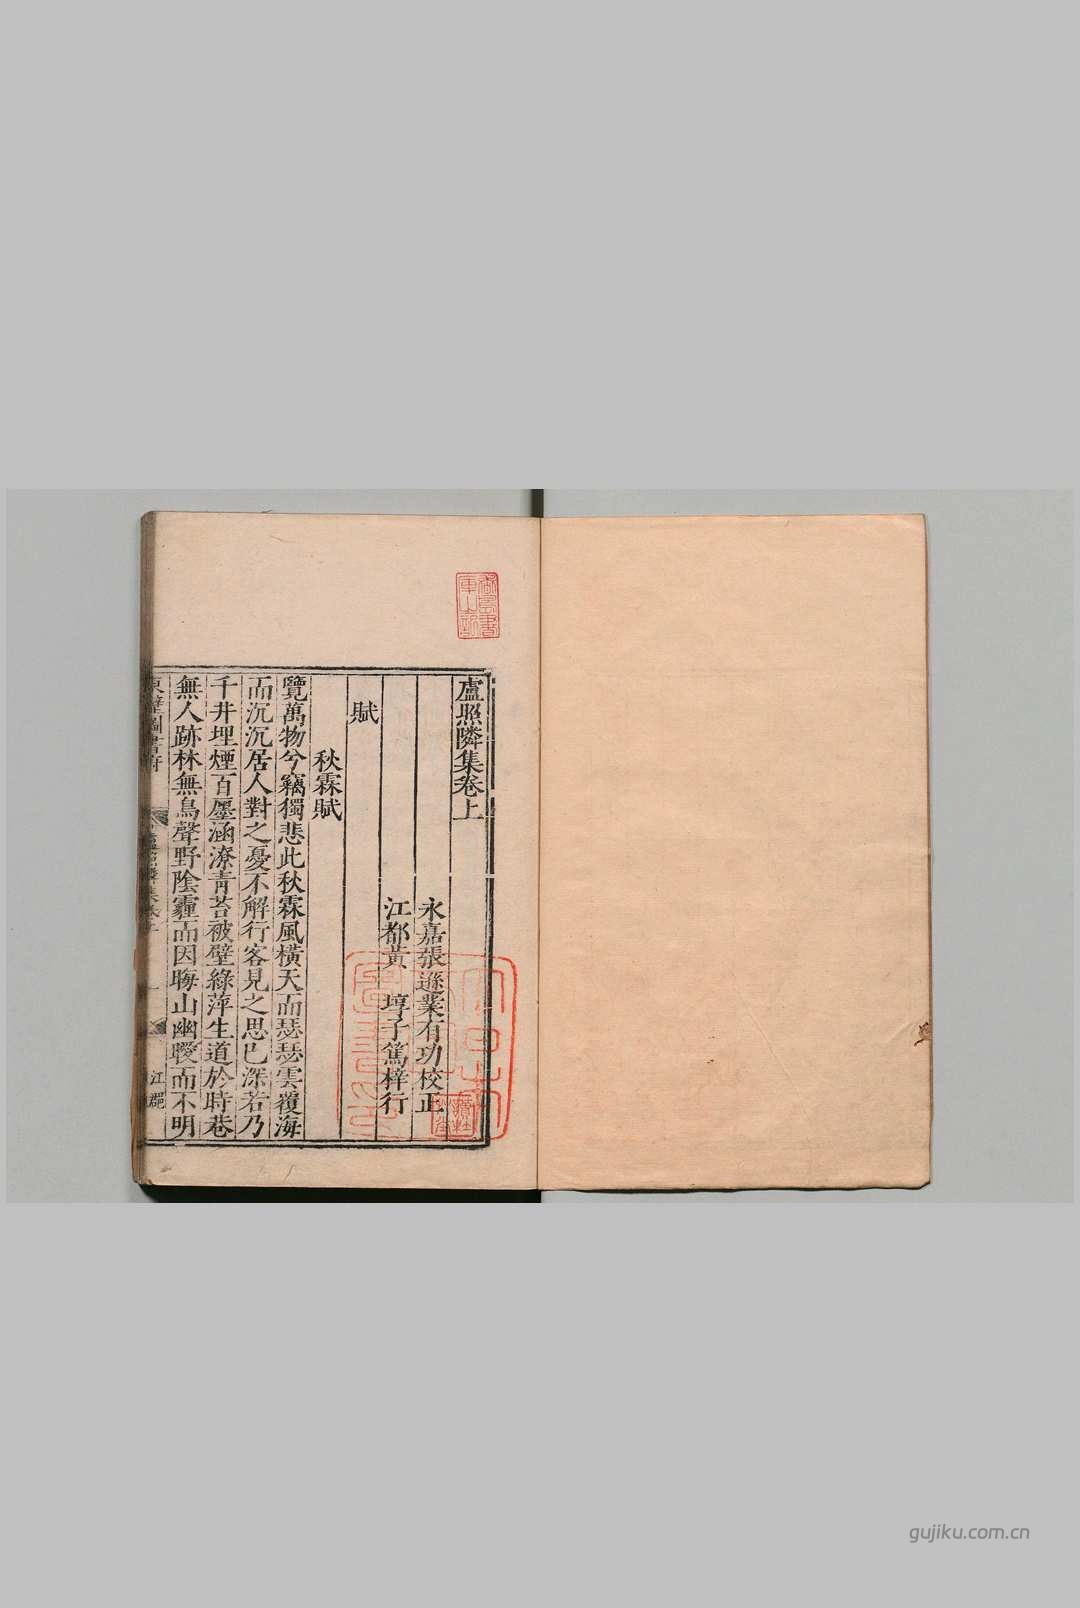 盧照隣集卷上
永嘉張遜業有功校正
江都黃　埻子篤梓行
賦
秋霖賦
覽萬物兮竊獨悲此秋霖風橫天而瑟瑟雲覆海
而沉沉居人對之憂不解行客見之思已深若乃
千井埋煙百廛涵潦青苔被壁綠萍生道於時巷
無人跡林無鳥聲野陰霾而因晦山幽曖而不明
東壁圖書府
江郡
gujiku.com.cn